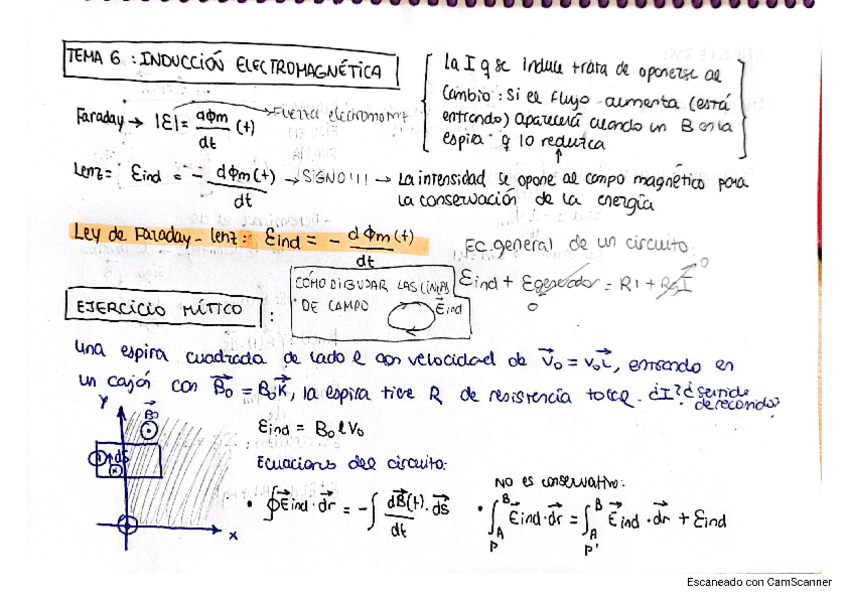 TEMA 6 : INDUCCIÓN ELECTROMAGNÉTICA
La I q se induce trata de oponerse al
cambio: Si el flujo aumenta (está
entrando) aparecerá cuando un B en la
espira q lo reduzca
Faraday → |ε| = dΦm/dt (t) → Fuerza electromotriz
Lenz = εind = - dΦm(t)/dt → SIGNO!!! → La intensidad se opone al campo magnético para
la conservación de la energía
Ley de Faraday - Lenz: εind = - dΦm(t)/dt
Ec. general de un circuito
εind + εgenerador = RI + I
0
0
CÓMO DIBUJAR LAS LÍNEAS
DE CAMPO
Eind
EJERCICIO MÍTICO :
Una espira cuadrada de lado l con velocidad de V₀ = v₀i, entrando en
un cajón con B₀ = B₀K, la espira tiene R de resistencia total. ¿I? ¿sentido
de recorrido?
Y
B₀
dS
x
εind = B₀ l V₀
Ecuaciones del circuito:
• ∮Eind · dr = -∫ dB(t)/dt · dS
NO es conservativo:
• ∫ᴬᴮ Eind · dr = ∫ᴬᴮ Eind · dr + εind
P P'
Escaneado con CamScanner